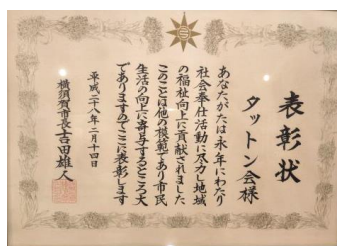 表彰状
タットン会様
あなたがたは永年にわたり
社会奉仕活動に尽力し地域
の福祉向上に貢献されました
このことは他の模範であり市民
生活の向上に寄与するところ大
でありますのでここに表彰します
平成二十八年二月十四日
横須賀市長吉田雄人